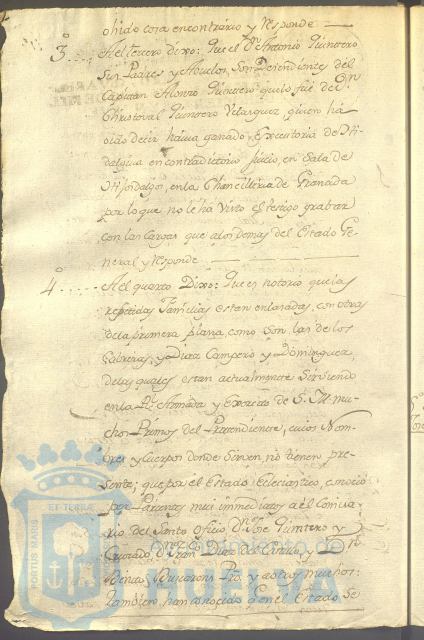 ohido cosa encontrario y Responde
3.º Al tercero dixo: Que el Dn. Antonio Quintero
sus Padres y Abuelos, son Desendientes del
Capitan Alonso Quintero quelo fué de Dn.
Christoval Quintero Velasquez, quien há
oido decir havia ganado Executoria de Hi
dalguia en contradictorio Juicio, en Sala de
Hijosdalgo, en la Chancilleria de Granada
por lo que no le há visto el testigo grabar
con las Cargas que alos demas del Estado Ge
neral y Responde
4.º Al quarto Dixo: Que es notorio que las
referidas Familias estan enlasadas, con otras
de la primera plana, como son, las de los
Cabreras, y Diaz Campero y Dominguez,
delas quales estan actualmente Sirviendo
en la Rl. Armada y Exercito de S. M. mu
chos Primos del Pretendiente, cuios Nom
bres y Cuerpos donde Sirven no tienen pre
sente; que por el Estado Eclesiastico, conoció
por Parientes mui inmediatos a él Comisa
rio del Santo Oficio Dn. Jose Quintero y
Fran. Diaz del
Pro. y aotros muchos:
tambien han conocido q.e en el Estado Se
PORTUS MARIS ET TERRÆ
Ayuntamiento de
HUELVA